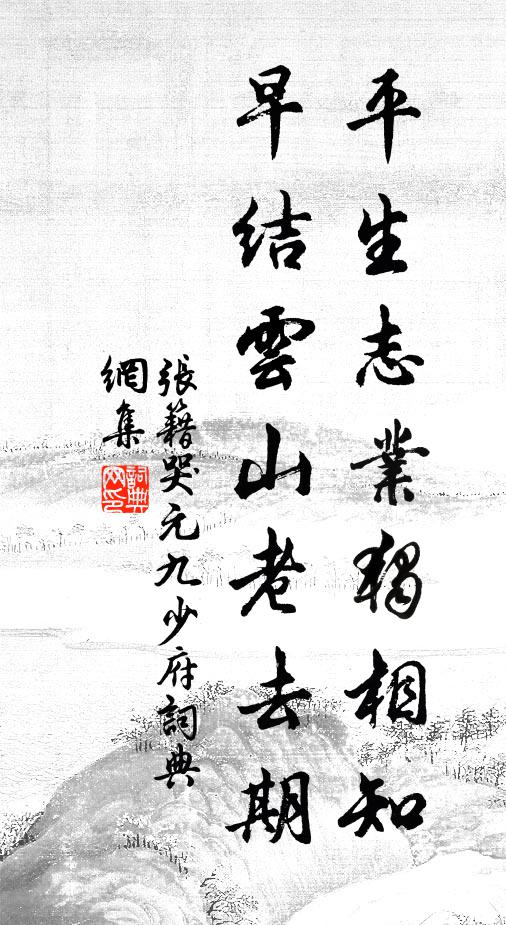 平生志業獨相知
早結雲山老去期
張籍哭元九少府詞典
網集
詞典網印